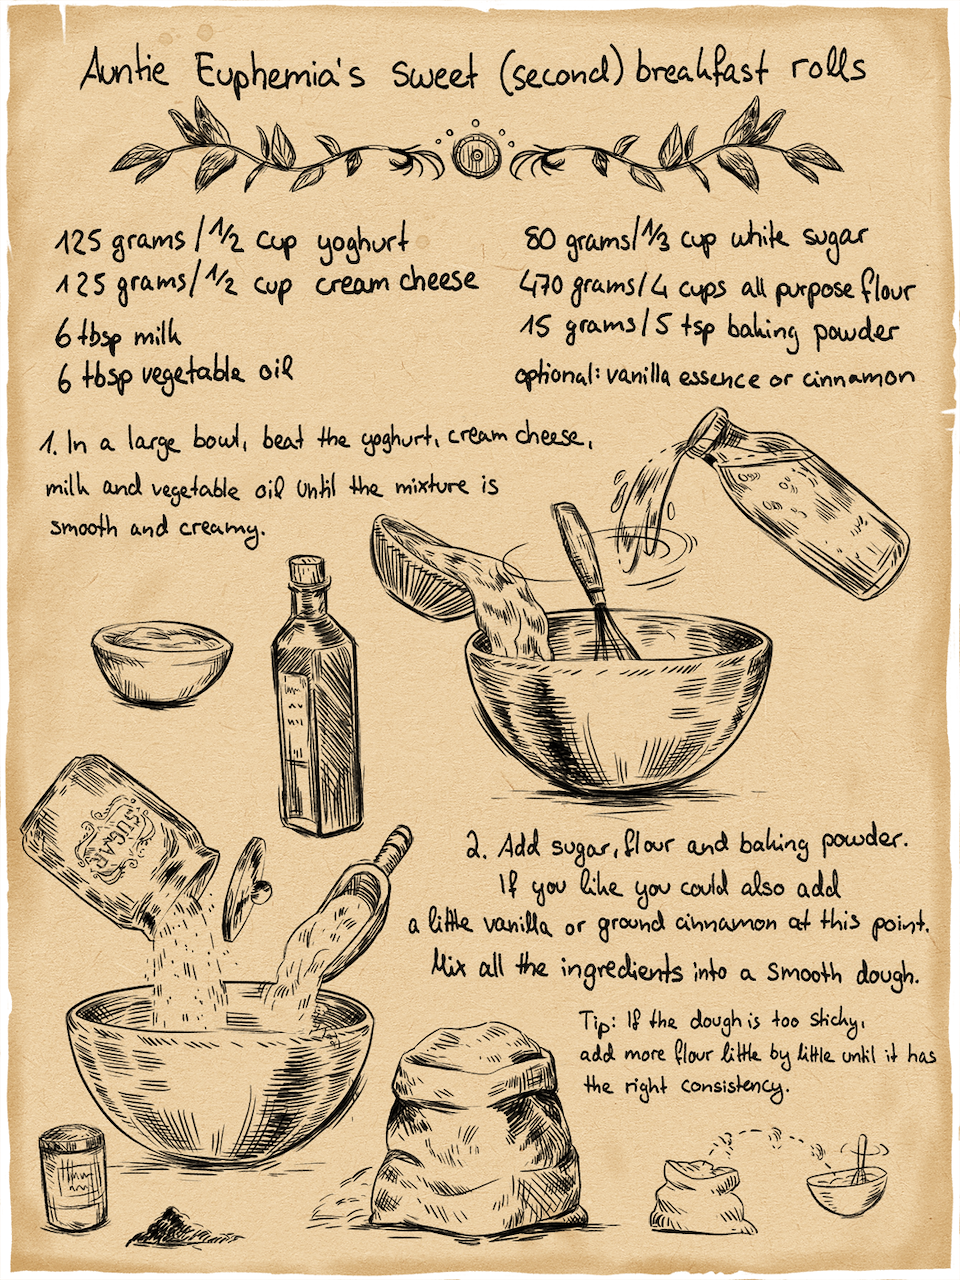 Auntie Euphemia's sweet (second) breakfast rolls
125 grams/1/2 cup yoghurt
125 grams/1/2 cup cream cheese
6 tbsp milk
6 tbsp vegetable oil
80 grams/1/3 cup white sugar
470 grams/4 cups all purpose flour
15 grams/5 tsp baking powder
optional: vanilla essence or cinnamon
1. In a large bowl, beat the yoghurt, cream cheese,
milk and vegetable oil until the mixture is
smooth and creamy.
SUGAR
2. Add sugar, flour and baking powder.
If you like you could also add
a little vanilla or ground cinnamon at this point.
Mix all the ingredients into a smooth dough.
Tip: If the dough is too sticky,
add more flour little by little until it has
the right consistency.